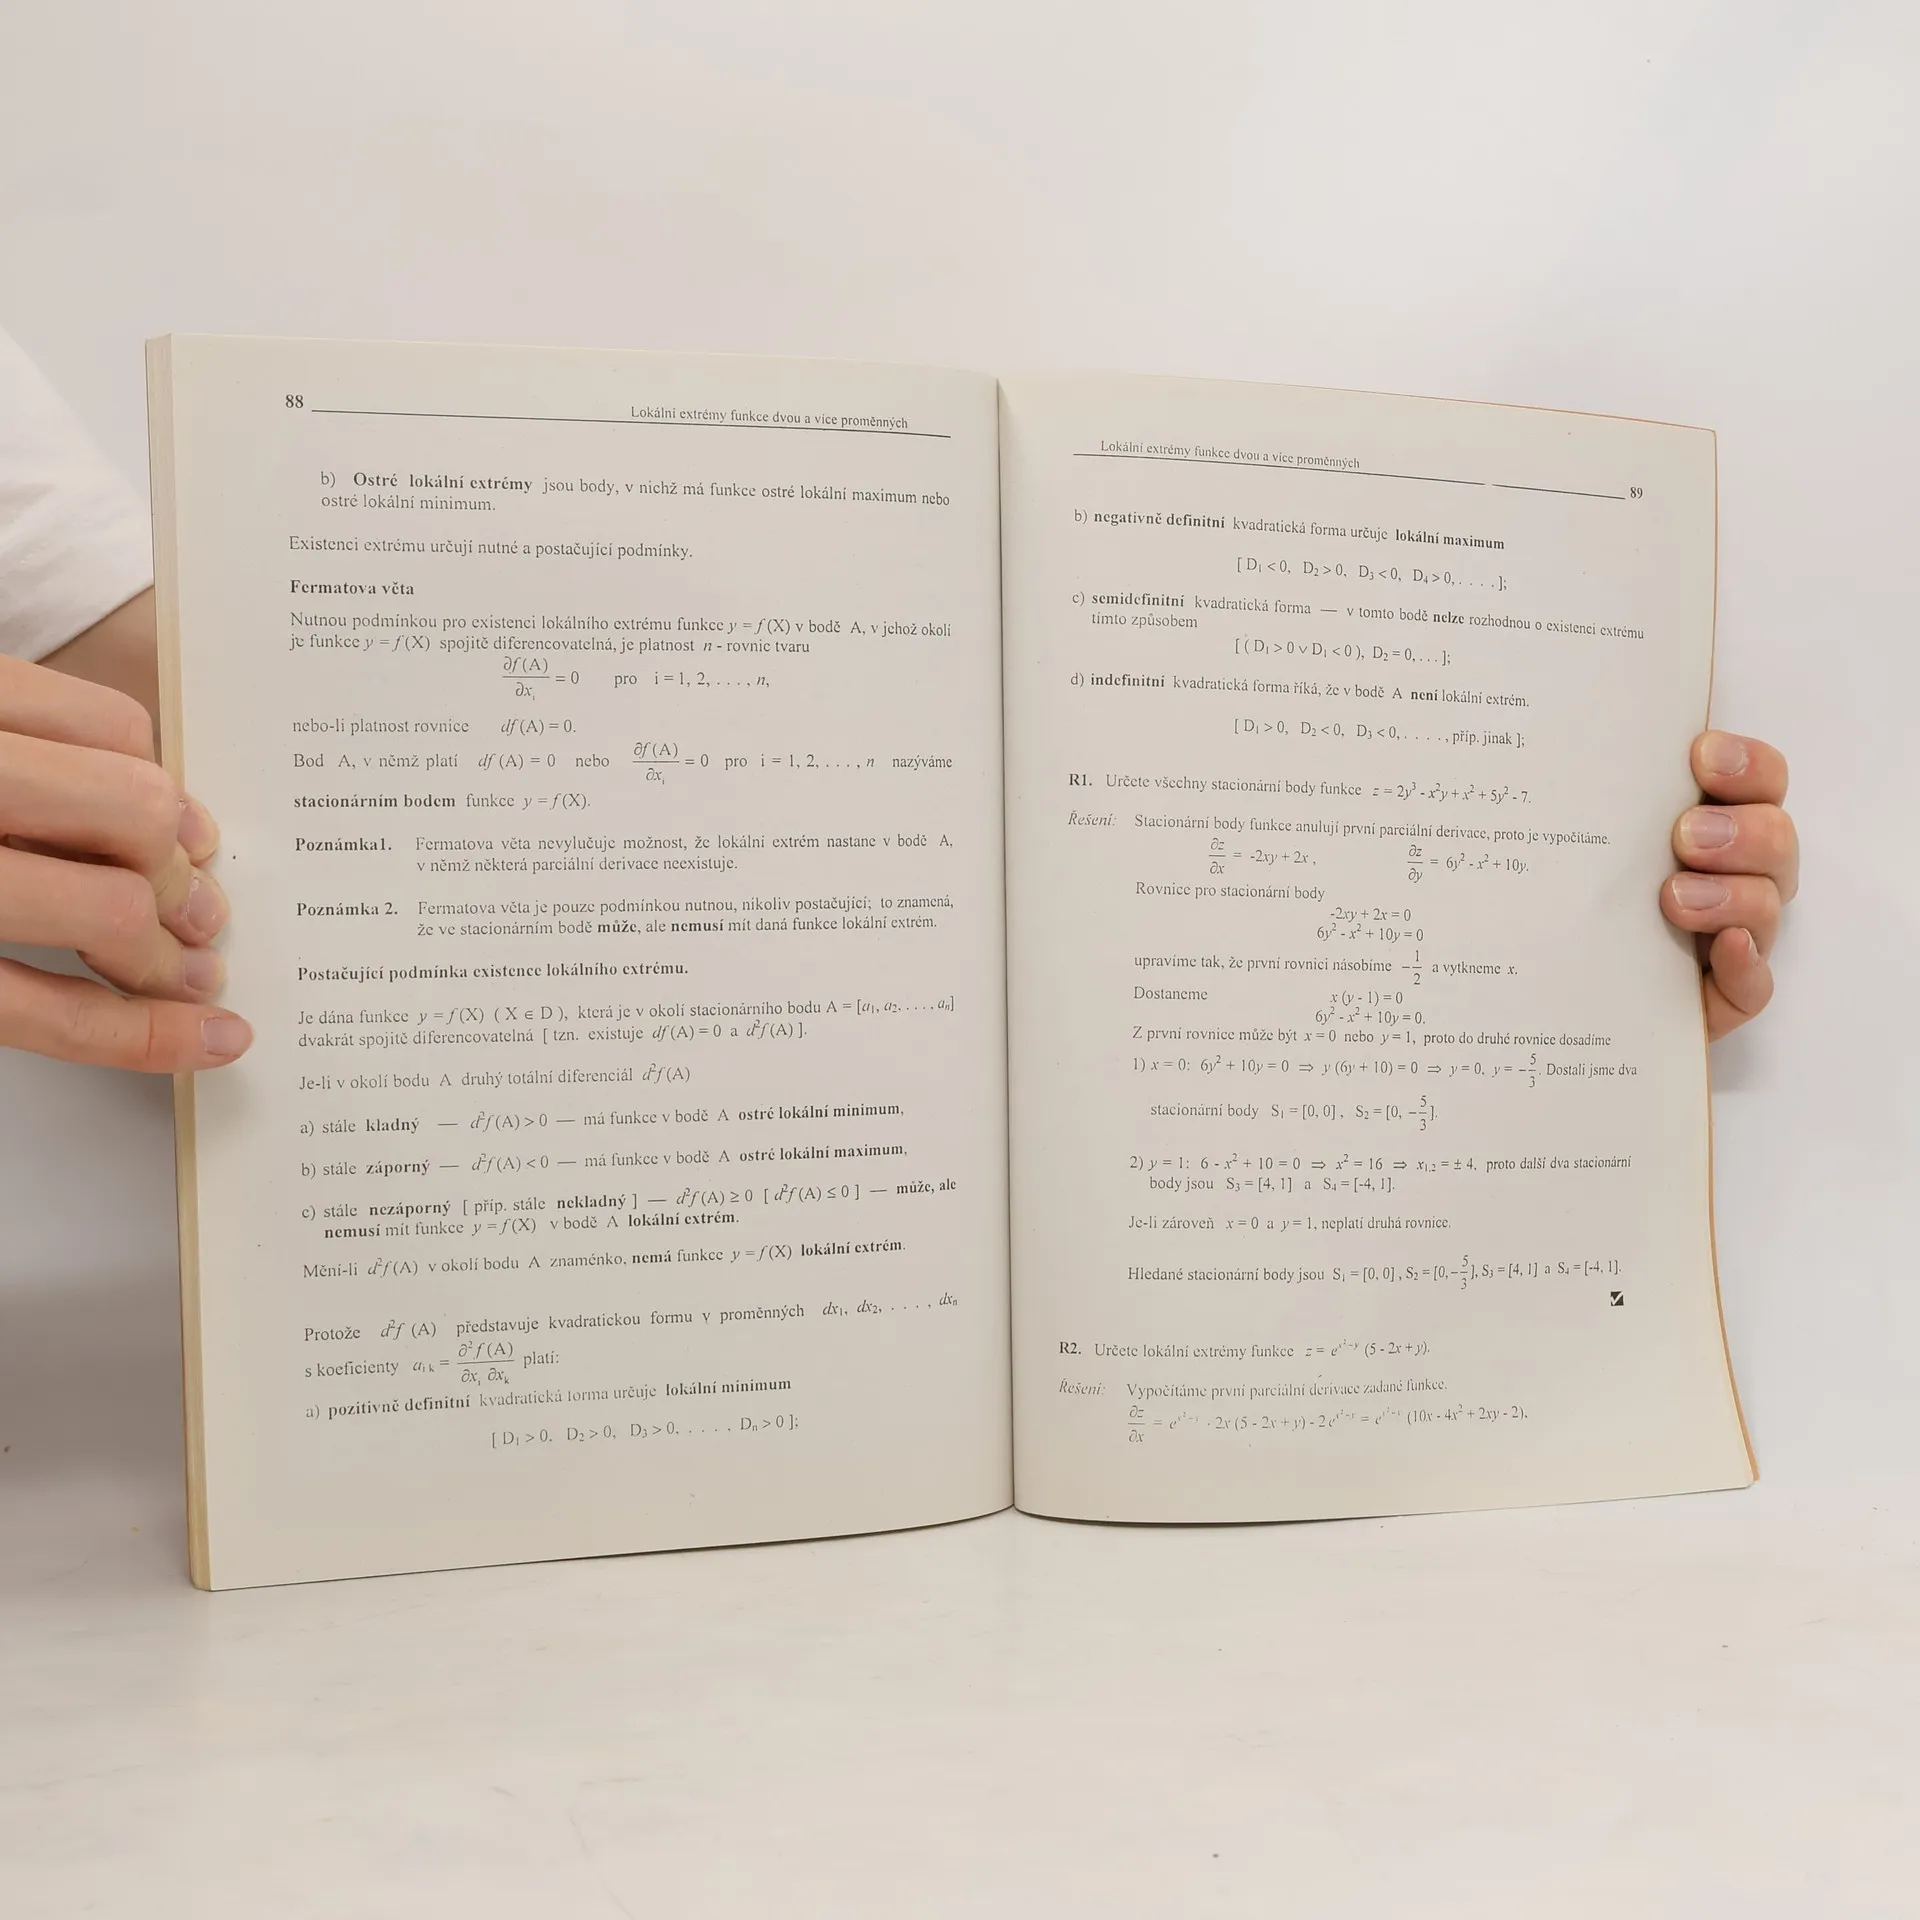 88
Lokální extrémy funkce dvou a více proměnných
b) Ostré lokální extrémy jsou body, v nichž má funkce ostré lokální maximum nebo
ostré lokální minimum.
Existenci extrému určují nutné a postačující podmínky.
Fermatova věta
Nutnou podmínkou pro existenci lokálního extrému funkce y = f(X) v bodě A, v jehož okolí
je funkce y = f(X) spojitě diferencovatelná, je platnost n - rovnic tvaru
∂f(A)/∂xᵢ = 0 pro i = 1, 2, . . . , n,
nebo-li platnost rovnice df(A) = 0.
Bod A, v němž platí df(A) = 0 nebo ∂f(A)/∂xᵢ = 0 pro i = 1, 2, . . . , n nazýváme
stacionárním bodem funkce y = f(X).
Poznámka1. Fermatova věta nevylučuje možnost, že lokální extrém nastane v bodě A,
v němž některá parciální derivace neexistuje.
Poznámka 2. Fermatova věta je pouze podmínkou nutnou, nikoliv postačující; to znamená,
že ve stacionárním bodě může, ale nemusí mít daná funkce lokální extrém.
Postačující podmínka existence lokálního extrému.
Je dána funkce y = f(X) ( X ∈ D ), která je v okolí stacionárního bodu A = [a₁, a₂, . . . , aₙ]
dvakrát spojitě diferencovatelná [ tzn. existuje df(A) = 0 a d²f(A) ].
Je-li v okolí bodu A druhý totální diferenciál d²f(A)
a) stále kladný — d²f(A) > 0 — má funkce v bodě A ostré lokální minimum,
b) stále záporný — d²f(A) < 0 — má funkce v bodě A ostré lokální maximum,
c) stále nezáporný [ příp. stále nekladný ] — d²f(A) ≥ 0 [ d²f(A) ≤ 0 ] — může, ale
nemusí mít funkce y = f(X) v bodě A lokální extrém.
Mění-li d²f(A) v okolí bodu A znaménko, nemá funkce y = f(X) lokální extrém.
Protože d²f (A) představuje kvadratickou formu v proměnných dx₁, dx₂, . . . , dxₙ
s koeficienty aᵢₖ = ∂²f(A)/∂xᵢ ∂xₖ platí:
a) pozitivně definitní kvadratická forma určuje lokální minimum
[ D₁ > 0, D₂ > 0, D₃ > 0, . . . . , Dₙ > 0 ];
Lokální extrémy funkce dvou a více proměnných
89
b) negativně definitní kvadratická forma určuje lokální maximum
[ D₁ < 0, D₂ > 0, D₃ < 0, D₄ > 0, . . . . ];
c) semidefinitní kvadratická forma — v tomto bodě nelze rozhodnou o existenci extrému
tímto způsobem
[ ( D₁ > 0 ∨ D₁ < 0 ), D₂ = 0, . . . ];
d) indefinitní kvadratická forma říká, že v bodě A není lokální extrém.
[ D₁ > 0, D₂ < 0, D₃ < 0, . . . . , příp. jinak ];
R1. Určete všechny stacionární body funkce z = 2y³ - x²y + x² + 5y² - 7.
Řešení: Stacionární body funkce anulují první parciální derivace, proto je vypočítáme.
∂z/∂x = -2xy + 2x , ∂z/∂y = 6y² - x² + 10y.
Rovnice pro stacionární body
-2xy + 2x = 0
6y² - x² + 10y = 0
upravíme tak, že první rovnici násobíme -1/2 a vytkneme x.
Dostaneme x (y - 1) = 0
6y² - x² + 10y = 0.
Z první rovnice může být x = 0 nebo y = 1, proto do druhé rovnice dosadíme
1) x = 0: 6y² + 10y = 0 ⇒ y (6y + 10) = 0 ⇒ y = 0, y = -5/3. Dostali jsme dva
stacionární body S₁ = [0, 0] , S₂ = [0, -5/3].
2) y = 1: 6 - x² + 10 = 0 ⇒ x² = 16 ⇒ x₁,₂ = ± 4, proto další dva stacionární
body jsou S₃ = [4, 1] a S₄ = [-4, 1].
Je-li zároveň x = 0 a y = 1, neplatí druhá rovnice.
Hledané stacionární body jsou S₁ = [0, 0] , S₂ = [0, -5/3], S₃ = [4, 1] a S₄ = [-4, 1].
R2. Určete lokální extrémy funkce z = e^(x²-y) (5 - 2x + y).
Řešení: Vypočítáme první parciální derivace zadané funkce.
∂z/∂x = e^(x²-y) · 2x (5 - 2x + y) - 2 e^(x²-y) = e^(x²-y) (10x - 4x² + 2xy - 2),